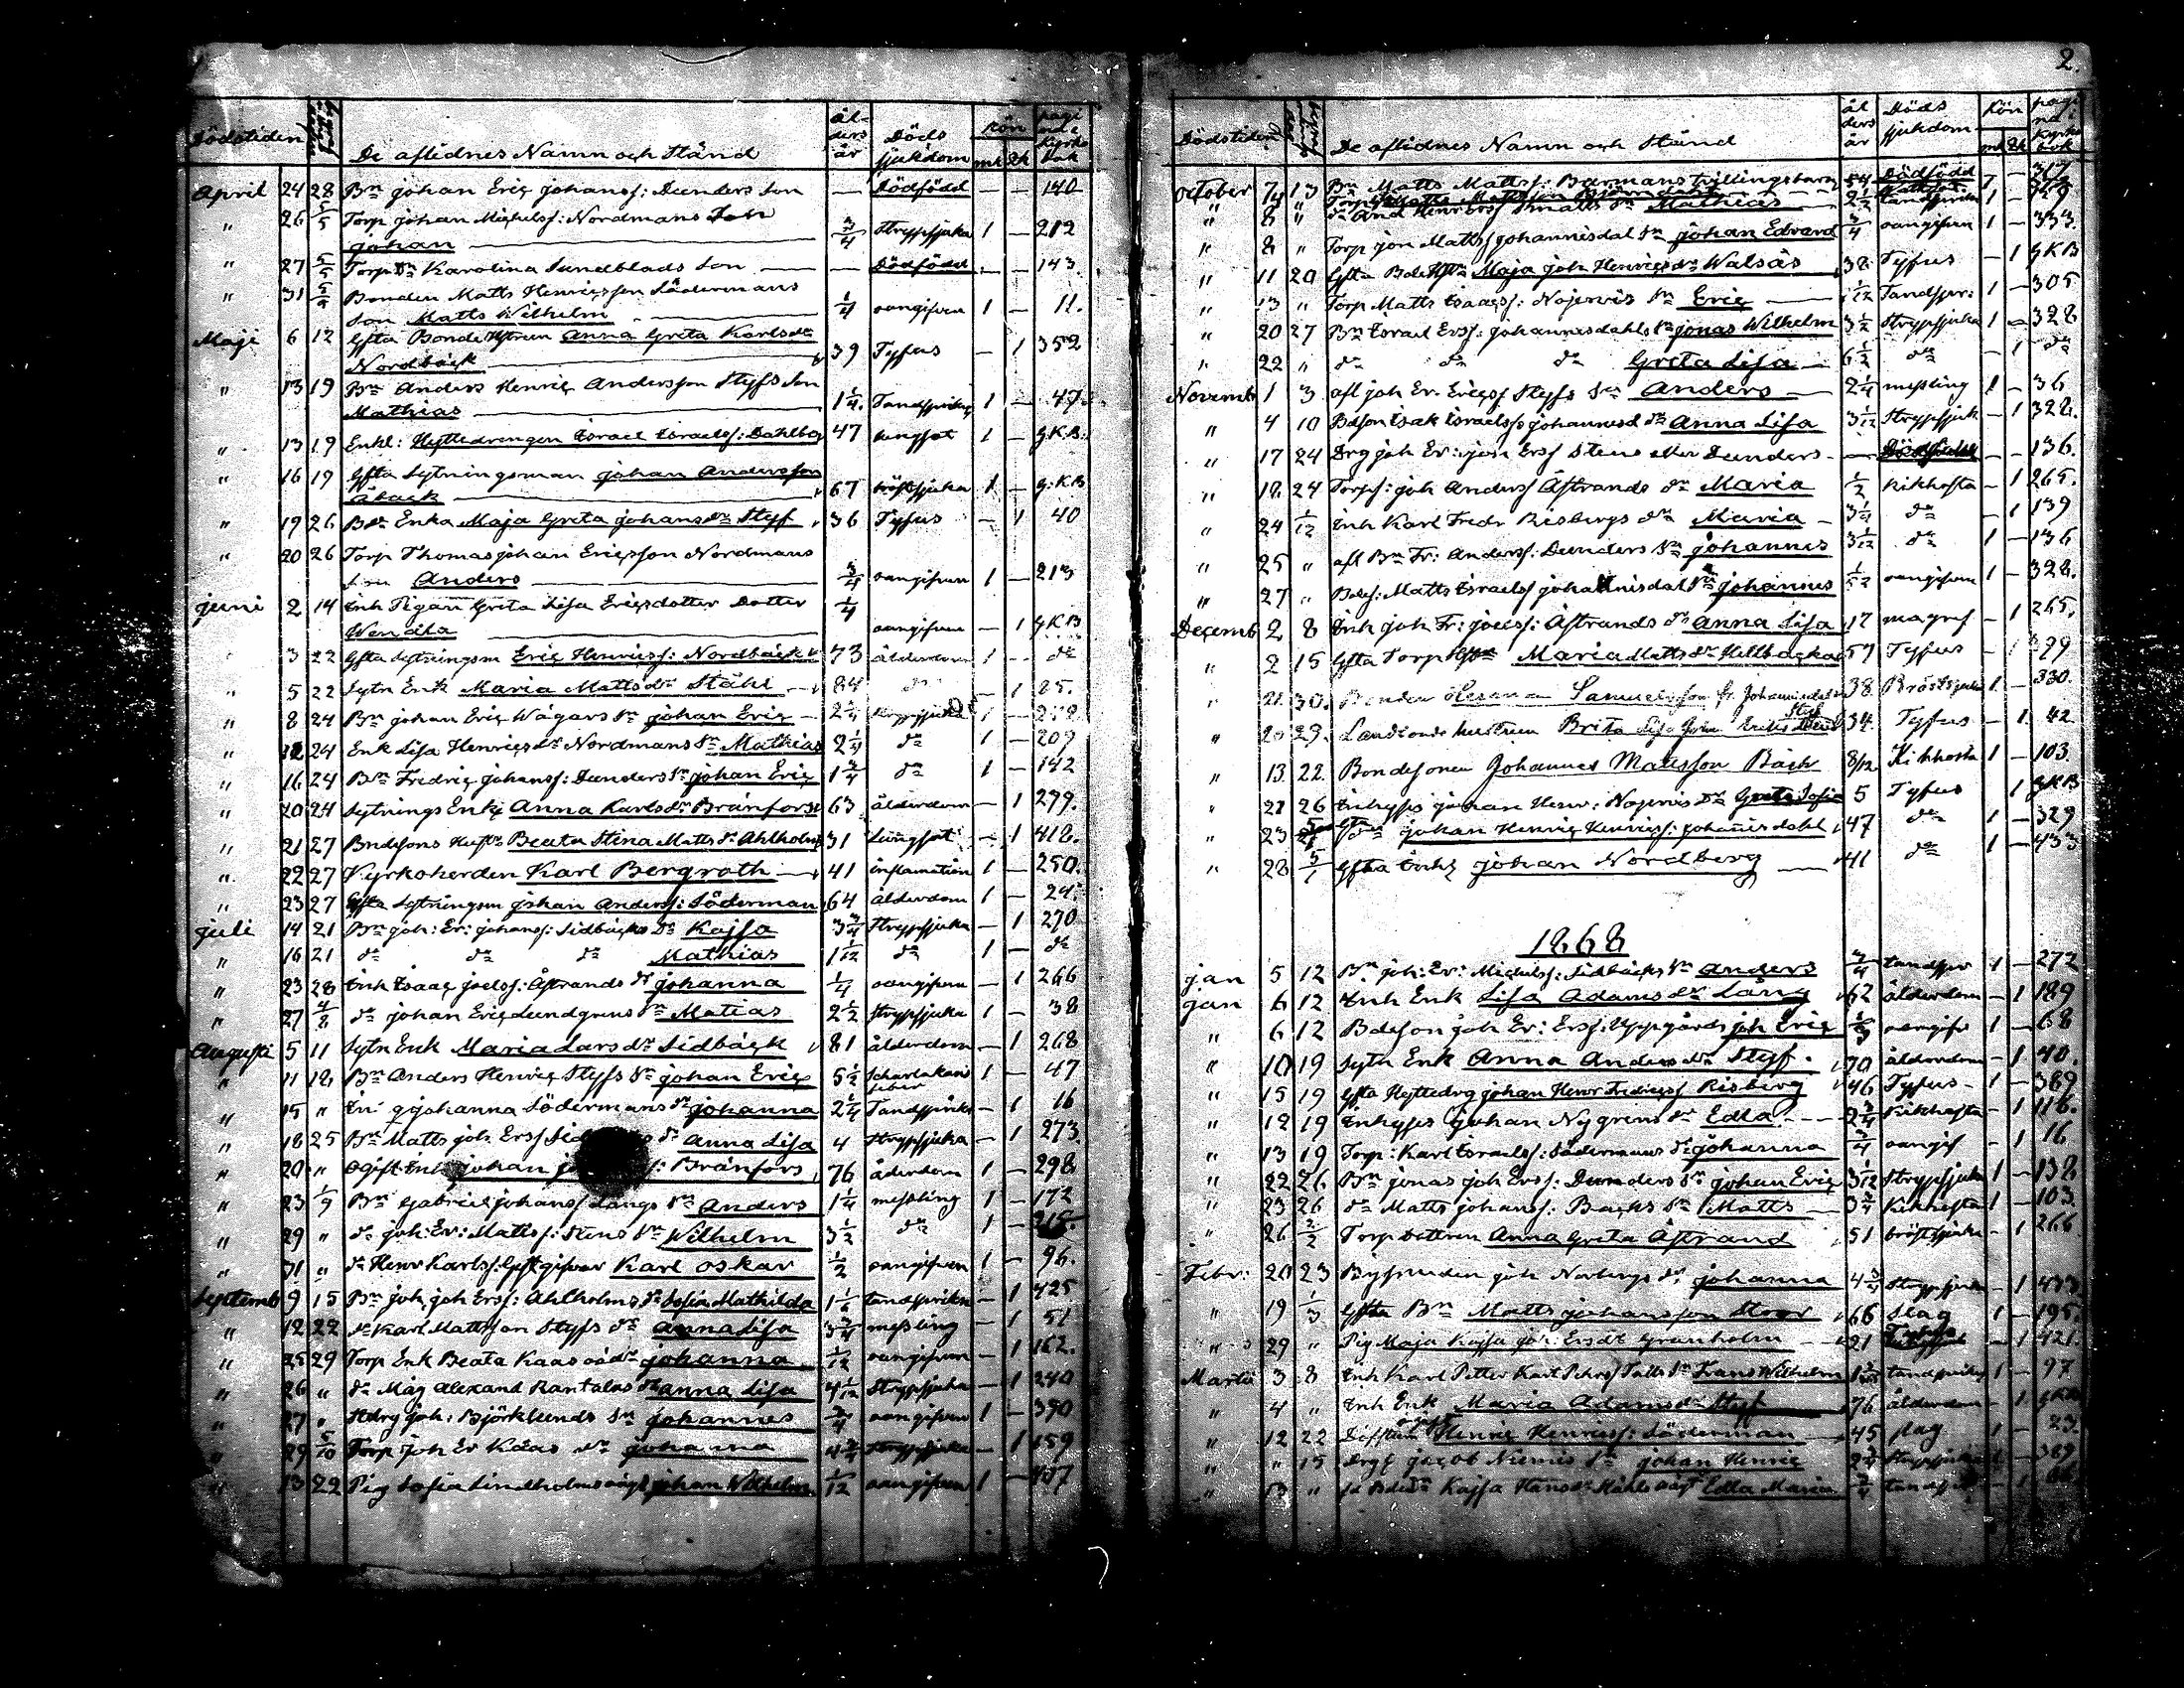 2.
Dödstiden De aflidnes Namn och Stånd ålders år Döds sjukdom Kön mk qk pagina i Kyrko bok
April 24 28 Bn Johan Eric Johanss: Dunders Son — Dödfödd — — 140
" 26 5/5 Torp Johan Michelss: Nordmans Son
Johan 3/4 Strypsjuka 1 — 212
" 27 5/5 Torp Dr Karolina Sundblads Son — Dödfödd — — 143
" 31 5/5 Bonden Matts Henricsson Södermans
Son Matts Wilhelm 1/4 oangifven 1 — 11.
Maji 6 12 Gfta Bonde Hustrun Anna Greta Karlsdr
Nordbäck 39 Tyfus — 1 352
" 13 19 Bn Anders Henric Andersson Styfs Son
Mathias 1 1/4 Tandsprickn 1 — 47
" 13 19 Enkl: Hyttedrengen Israel Israelss: Dahlbo 47 lungsot 1 — gKB.
" 16 19 Gfta Sytningsman Johan Andersson
Åback 67 bröstsjuka 1 — gKB
" 19 26 Bde Enka Maja Greta Johansdr Styf 36 Tyfus — 1 40
" 20 26 Torp Thomas Johan Ericsson Nordmans
Son Anders 3/4 oangifven 1 — 213
Juni 2 14 Inh Pigan Greta Lisa Ericsdotter Dotter 1/4
Wendla oangifven — 1 gKB
3 22 Gfta Sytningsm Eric Henricss: Nordbäck 73 ålderdom 1 — do
" 5 22 Sytn Enk Maria Mattsdr Ståhl 84 do — 1 85.
" 8 24 Bn Johan Eric Wägars Sn Johan Eric 2 1/4 strypsjuka 1 —
" 12 24 Enk Lisa Henricsdr Nordmans Sn Mathias 2 1/4 do 1 — 209
" 16 24 Bn Fredric Johanss: Dunders Sn Johan Eric 1 3/4 do 1 — 142
" 20 24 Sytnings Enk Anna Karlsdr Bränfors 63 ålderdom — 1 279.
" 21 27 Bndesons Hustr Beata Stina Mattsdr Ahlholm 31 Lungsot — 1 418.
" 22 27 Kyrkoherden Karl Bergroth 41 inflamation 1 — 250.
" 23 27 Gfta Sytningsm Johan Anderss: Söderman 64 ålderdom 1 — 24.
Juli 14 21 Bn Joh: Er: Johanss: Sidbäcks Dr Kajsa 3 3/4 Strypsjuka — 1 270
" 16 21 do do do Mathias 1 1/12 do 1 — do
" 23 28 Inh Isaac Joelss: Åstrands dr Johanna 1/4 oangifven — 1 266
" 27 4/8 do Johan Eric Lundgrens Sn Matias 2 1/2 Strypsjuka 1 — 38
Augusti 5 11 Sytn Enk Maria Larsdr Sidbäck 81 ålderdom — 1 268
" 11 18 Bn Anders Henric Styfs Sn Johan Eric 5 1/2 Scharlakans feber 1 — 47
" 15 " Johanna Södermans dr Johanna 2 1/4 Tandspricka — 1 16
" 18 25 Bn Matts Joh Erss dr Anna Lisa 4 Strypsjuka — 1 273
" 20 " Ogift Inh Johan Bränfors 76 ålderdom 1 — 298
" 23 1/9 Bn Gabriel Johanss Långs Sn Anders 1 1/4 messling 1 — 172
" 29 " do Joh: Er: Mattss: Stens Sn Wilhelm 3 1/2 do 1 — 215.
" 31 " do Henr Karlss: Gästgifvar Karl Oskar 1/2 oangifven 1 — 96.
Septemb 9 15 Bn Joh Joh Erss: Ahlholms dr Sofia Mathilda 1 1/6 tandspricka — 1 425
" 12 22 do Karl Mattsson Styfs dr Anna Lisa 3 3/4 messling — 1 51
" 25 29 Torp Enk Beata Kaas oädr Johanna 1/12 oangifven — 1 162.
" 26 " do Måg Alexand Rantalas dr Anna Lisa 4 1/12 Strypsjuka — 1 240
" 27 " Hdrg Joh: Björklunds Sn Johannes 3/4 oangifven 1 — 390
" 29 5/10 Torp Joh Er Kaas dr Johanna 4 3/4 Strypsjuka — 1 159
" 13 22 Pig Sofia Lindholms Johan Wilhelm 1/12 oangifven 1 — 457
Dödstiden De aflidnes Namn och Stånd ålders år Döds sjukdom Kön mk qk pagina i Kyrko bok
October 7 13 Bn Matts Mattss: Burmans tvillingsbarn Dödfödd — 317
" 8 " Mathias 2 1/2 tandspricka
" 8 " Torp Jon Mattss Johannisdal Sn Johan Edvard 3/4 oangifven 1 — 333.
" 11 20 Gfta Bde Hustr Maja Joh Henricsdr Walsäs 38 Tyfus — 1 gKB
" 13 " Torp Matts Isaacss: Nojervis Sn Eric 1/12 Tandspr: 1 — 305
" 20 27 Bn Israel Erss: Johannesdahls Sn Jonas Wilhelm 3 1/2 Strypsjuka 1 — 328
" 22 " do do do Greta Lisa 6 1/2 do — 1 do
Novemb 1 3 afl Joh Er. Ericss Styfs Sn Anders 2 1/4 messling 1 — 36
" 4 10 Bdeson Isak Israelss Johannesd dr Anna Lisa 3 1/12 Strypsjuk — 1 328.
" 17 24 Drg Joh Er: Joh Erss Stens eller Dunders — Dödfödd — — 136.
" 18 24 Torp: Joh Anderss Åstrands dr Maria 1/2 Kikhosta — 1 265.
" 24 1/12 Inh Karl Fredr Risbergs dr Maria 3 1/4 do — 1 139
" 25 " afl Bn Fr: Anderss: Dunders Sn Johannes 3 1/12 do 1 — 136
" 27 " Bdes: Matts Israelss Johannisdal Sn Johannes 1/52 oangifven 1 — 328.
Decemb 2 8 Inh Joh Fr: Joelss: Åstrands dr Anna Lisa 17 magref — 1 265.
" 2 15 Gfta Torp Hustr Maria Mattsdr Hellbacka 57 Tyfus — 1 29
" 21 30. Bonden Herman Samuelsson fr. Johannisdal 38 Bröstsjuka 1 — 330.
" 20 29. Landbonde hustrun Brita Lisa Styf 34 Tyfus — 1 42
" 13 22. Bondesonen Johannes Mattsson Bäck 8/12 Kikhosta 1 — 103.
" 21 26 Inhyses Johan Henr: Nojervis Dr Greta Sofia 5 Tyfus 1 gKB
" 23 Johan Henric Henricss: Johannisdahl 47 do 1 — 329
" 28 5/1 Gfta Inh Johan Nordberg 41 do 1 — 433
1868
Jan 5 12 Bn Joh: Er: Michelss: Sidbäcks Sn Anders 3/4 tandspr 1 — 272
Jan 6 12 Inh Enk Lisa Adamsdr Lång 62 ålderdom — 1 189
" 6 12 Bdeson Joh Er: Erss: Uppgårds Joh Eric oangifv 1 — 68
" 10 19 Sytn Enk Anna Andersdr Styf. 70 ålderdom — 1 40.
" 15 19 Gfta Hyttedrg Johan Henr Fredricss Risberg 46 Tyfus — 1 — 389
" 12 19 Inhyses Johan Nygrens dr Edla 2 3/4 Kikhosta — 1 116.
" 13 19 Torp: Karl Israelss: Södermans dr Johanna 3/4 oangif — 1 16
" 22 26 Bn Jonas Joh Erss: Dunders Sn Johan Eric 3 1/12 Strypsjuka 1 — 138
" 23 26 do Matts Johanss: Backs Sn Matts 3 3/4 Kikhosta 1 — 103
" 26 2/2 Torp Dottren Anna Greta Åstrand 51 bröstsjuka — 1 266
Febr: 20 23 Bysmeden Joh Norbergs dr Johanna 4 3/4 Strypsjuka — 1 433
" 19 1/3 Gfta Bn Matts Johansson Stoor 66 Slag 1 — 195.
" 29 " Pig Maja Kajsa Joh: Ersdr Granholm 21 — 1 421.
Martii 3 8 Inh Karl Petter Karl Pehrs Sn Frans Wilhelm tandspricka 1 — 97
" 4 " Inh Enk Maria Adamsdr Styf 76 ålderdom — 1 gKB
" 12 22 Henric Henricss: Söderman 45 slag 1 — 23.
" " 15 Drg Jacob Niemis Sn Johan Henric 2 3/4 Strypsjuka 1 — 389
" " Kajsa Hansdr Ståhls Edla Maria 3/4 tandspr — 1